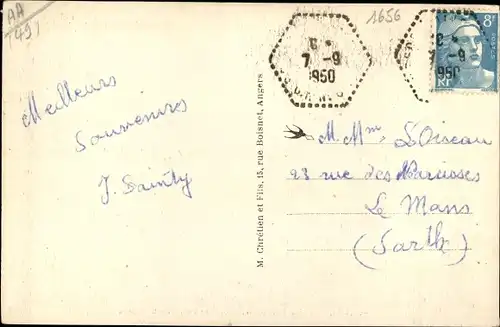 AA
1491
1656
6 *
7 - 9
1950
8F
RF
6 *
- 9
1950
Meilleurs
Souvenirs
J. Sainty
M. Chrétien et Fils, 15, rue Boisnet, Angers
M. Mme L'Oiseau
23 rue des Narcisses
Le Mans
(Sarthe)